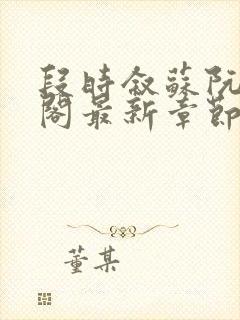 段时叙蘇阮
閣最新章節
董某